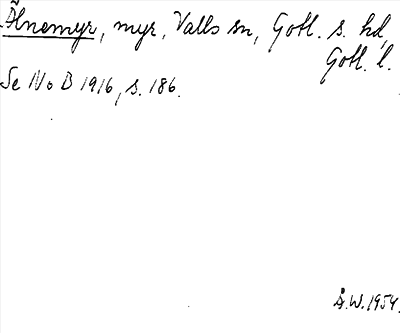 Älnemyr, myr, Valls sn, Gotl. s. hd,
Gotl. l.
Se NoB 1916, s. 186.
Å.W. 1954.